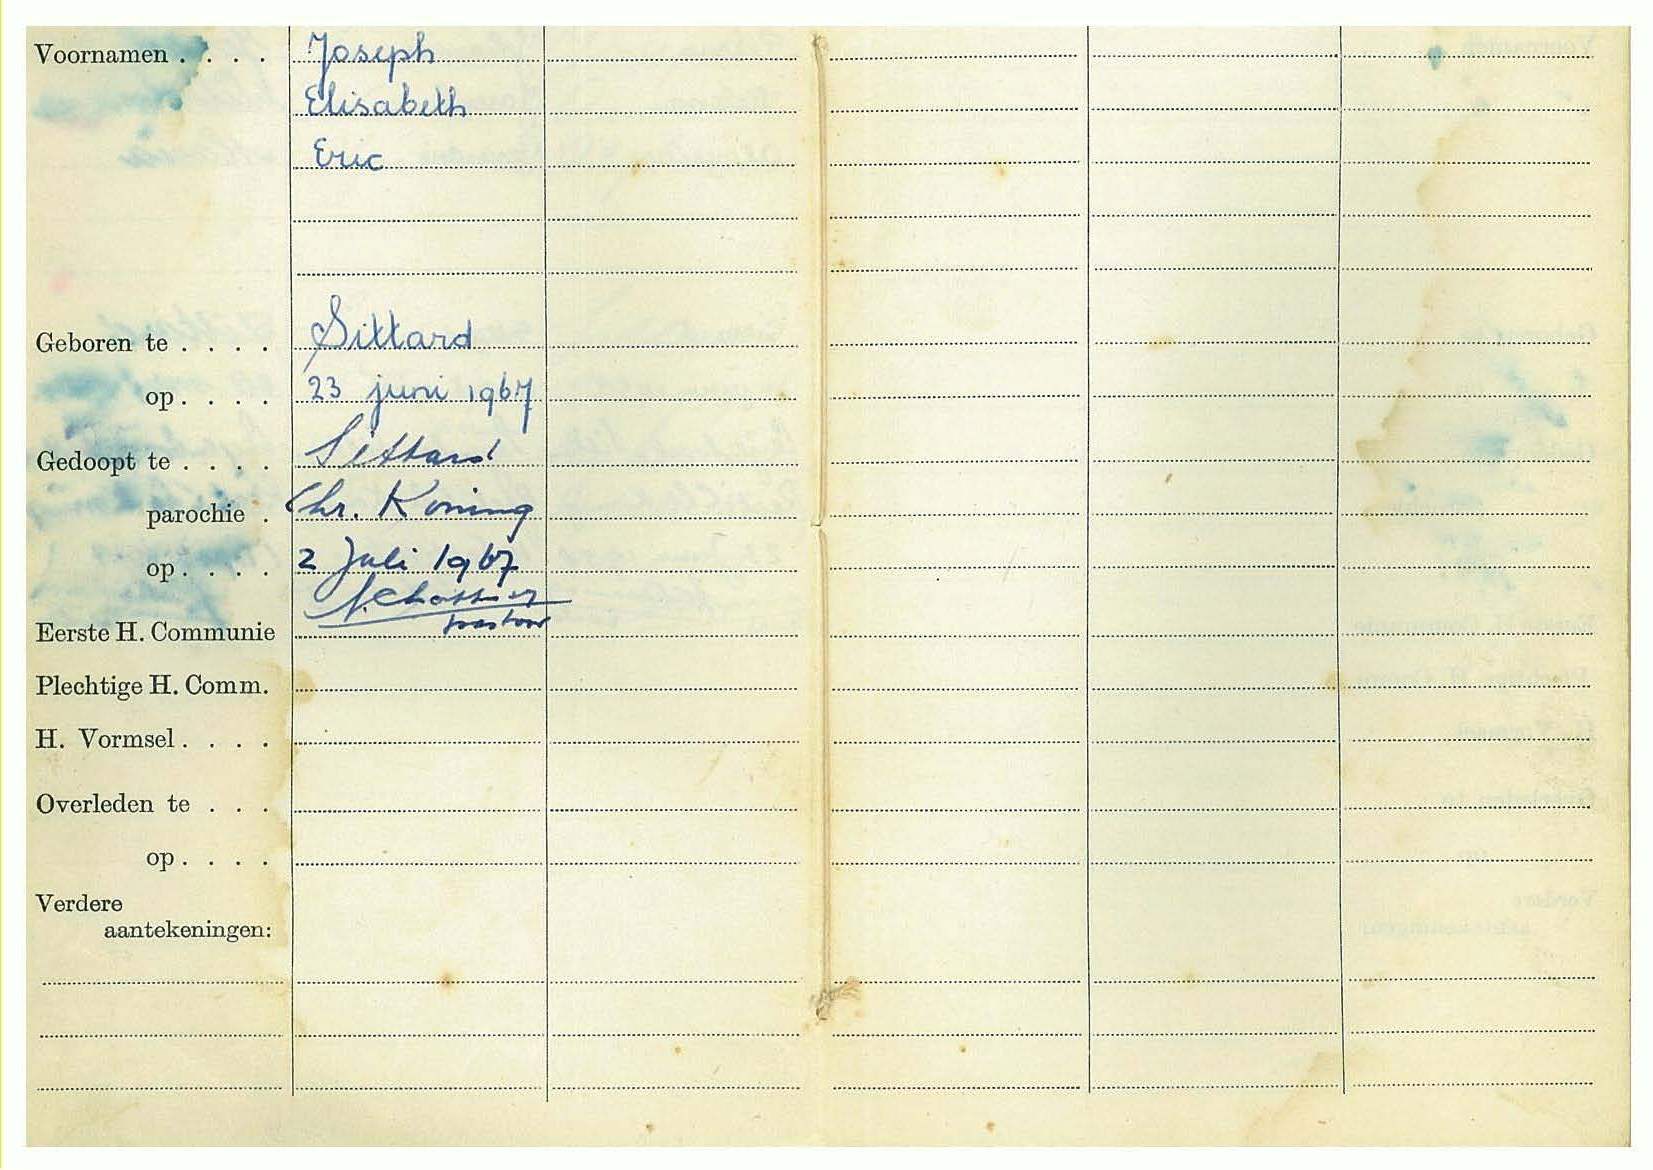 Voornamen . . . . Joseph
Elisabeth
Eric
Geboren te . . . . Sittard
op . . . . 23 juni 1967
Gedoopt te . . . . Sittard
parochie . Chr. Koning
op . . . . 2 Juli 1967
pastoor
Eerste H. Communie
Plechtige H. Comm.
H. Vormsel . . . .
Overleden te . . .
op . . . .
Verdere
aantekeningen: